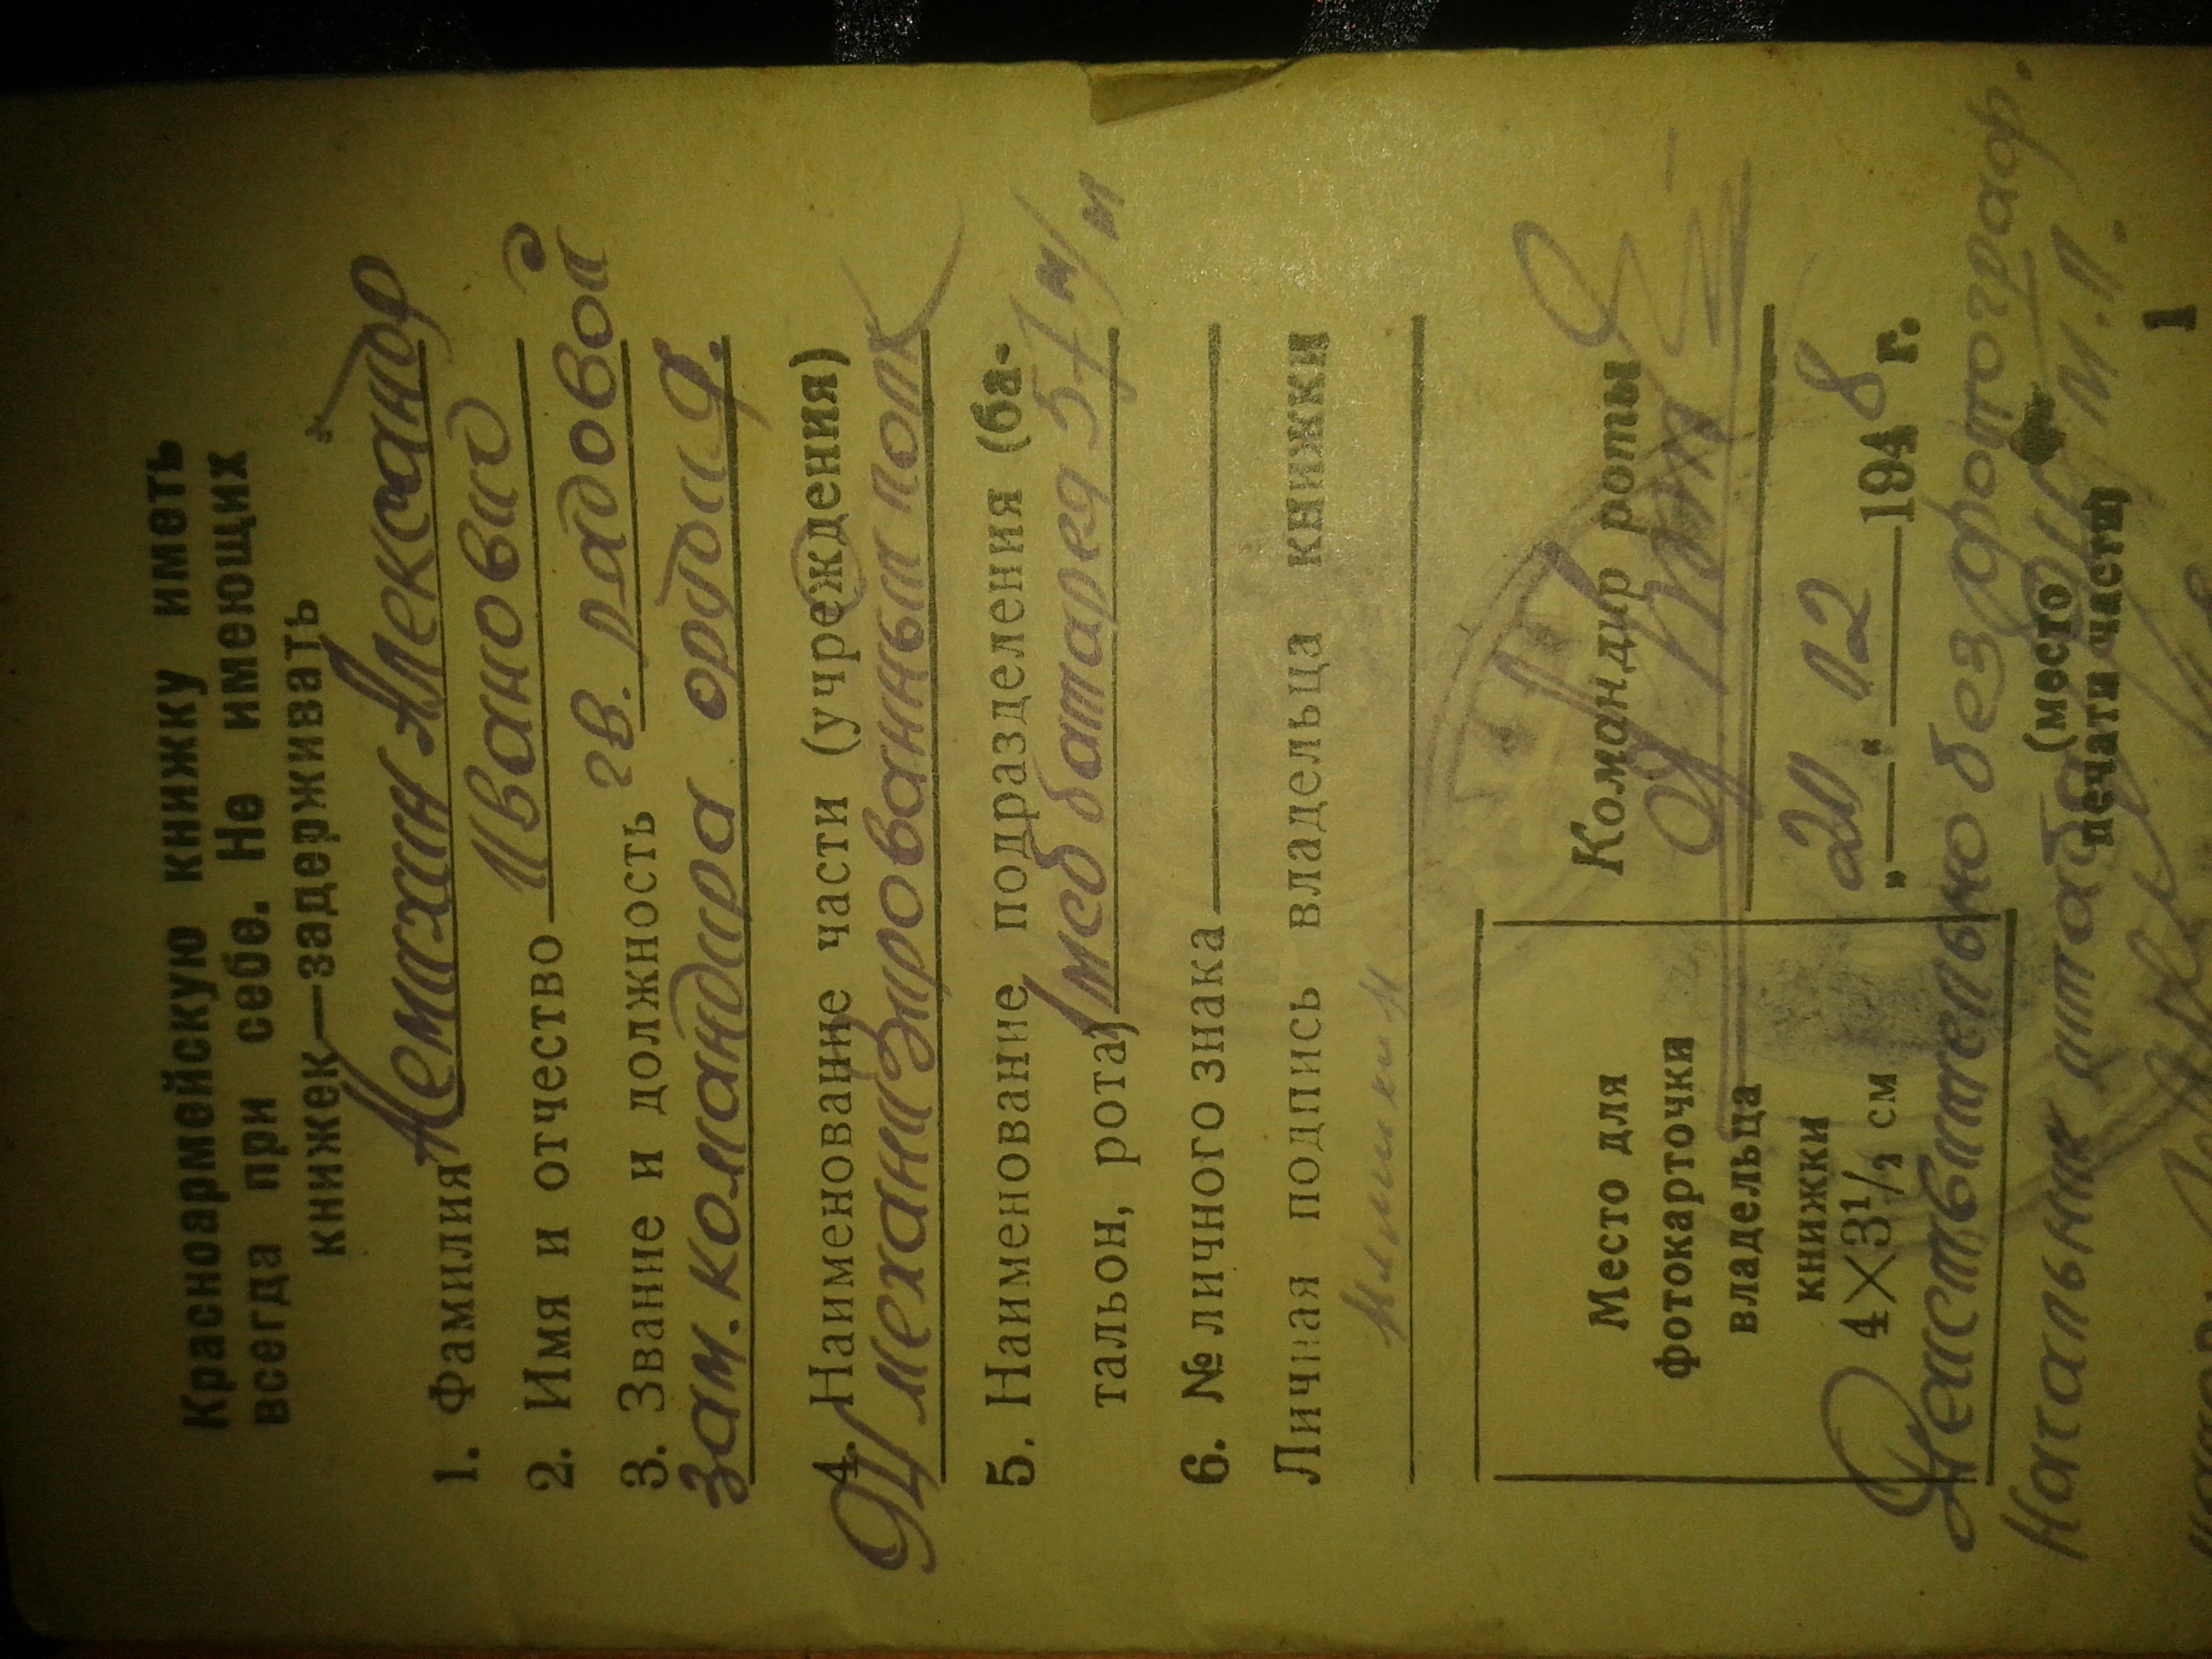 Красноармейскую книжку иметь
всегда при себе. Не имеющих
книжек—задерживать
1. Фамилия Лемихин Александр
2. Имя и отчество Иванович
3. Звание и должность гв. рядовой
зам. командира орудия.
4. Наименование части (учреждения)
94 механизированный полк
5. Наименование подразделения (ба-
тальон, рота) батарея 57 м/м
6. № личного знака
Личная подпись владельца книжки
Командир роты
Место для
фотокарточки
владельца
книжки
4×3½ см
„20“ 12 1948 г.
Действительно без фотограф.
(место
печати части)
Начальник штаба М.П.
1